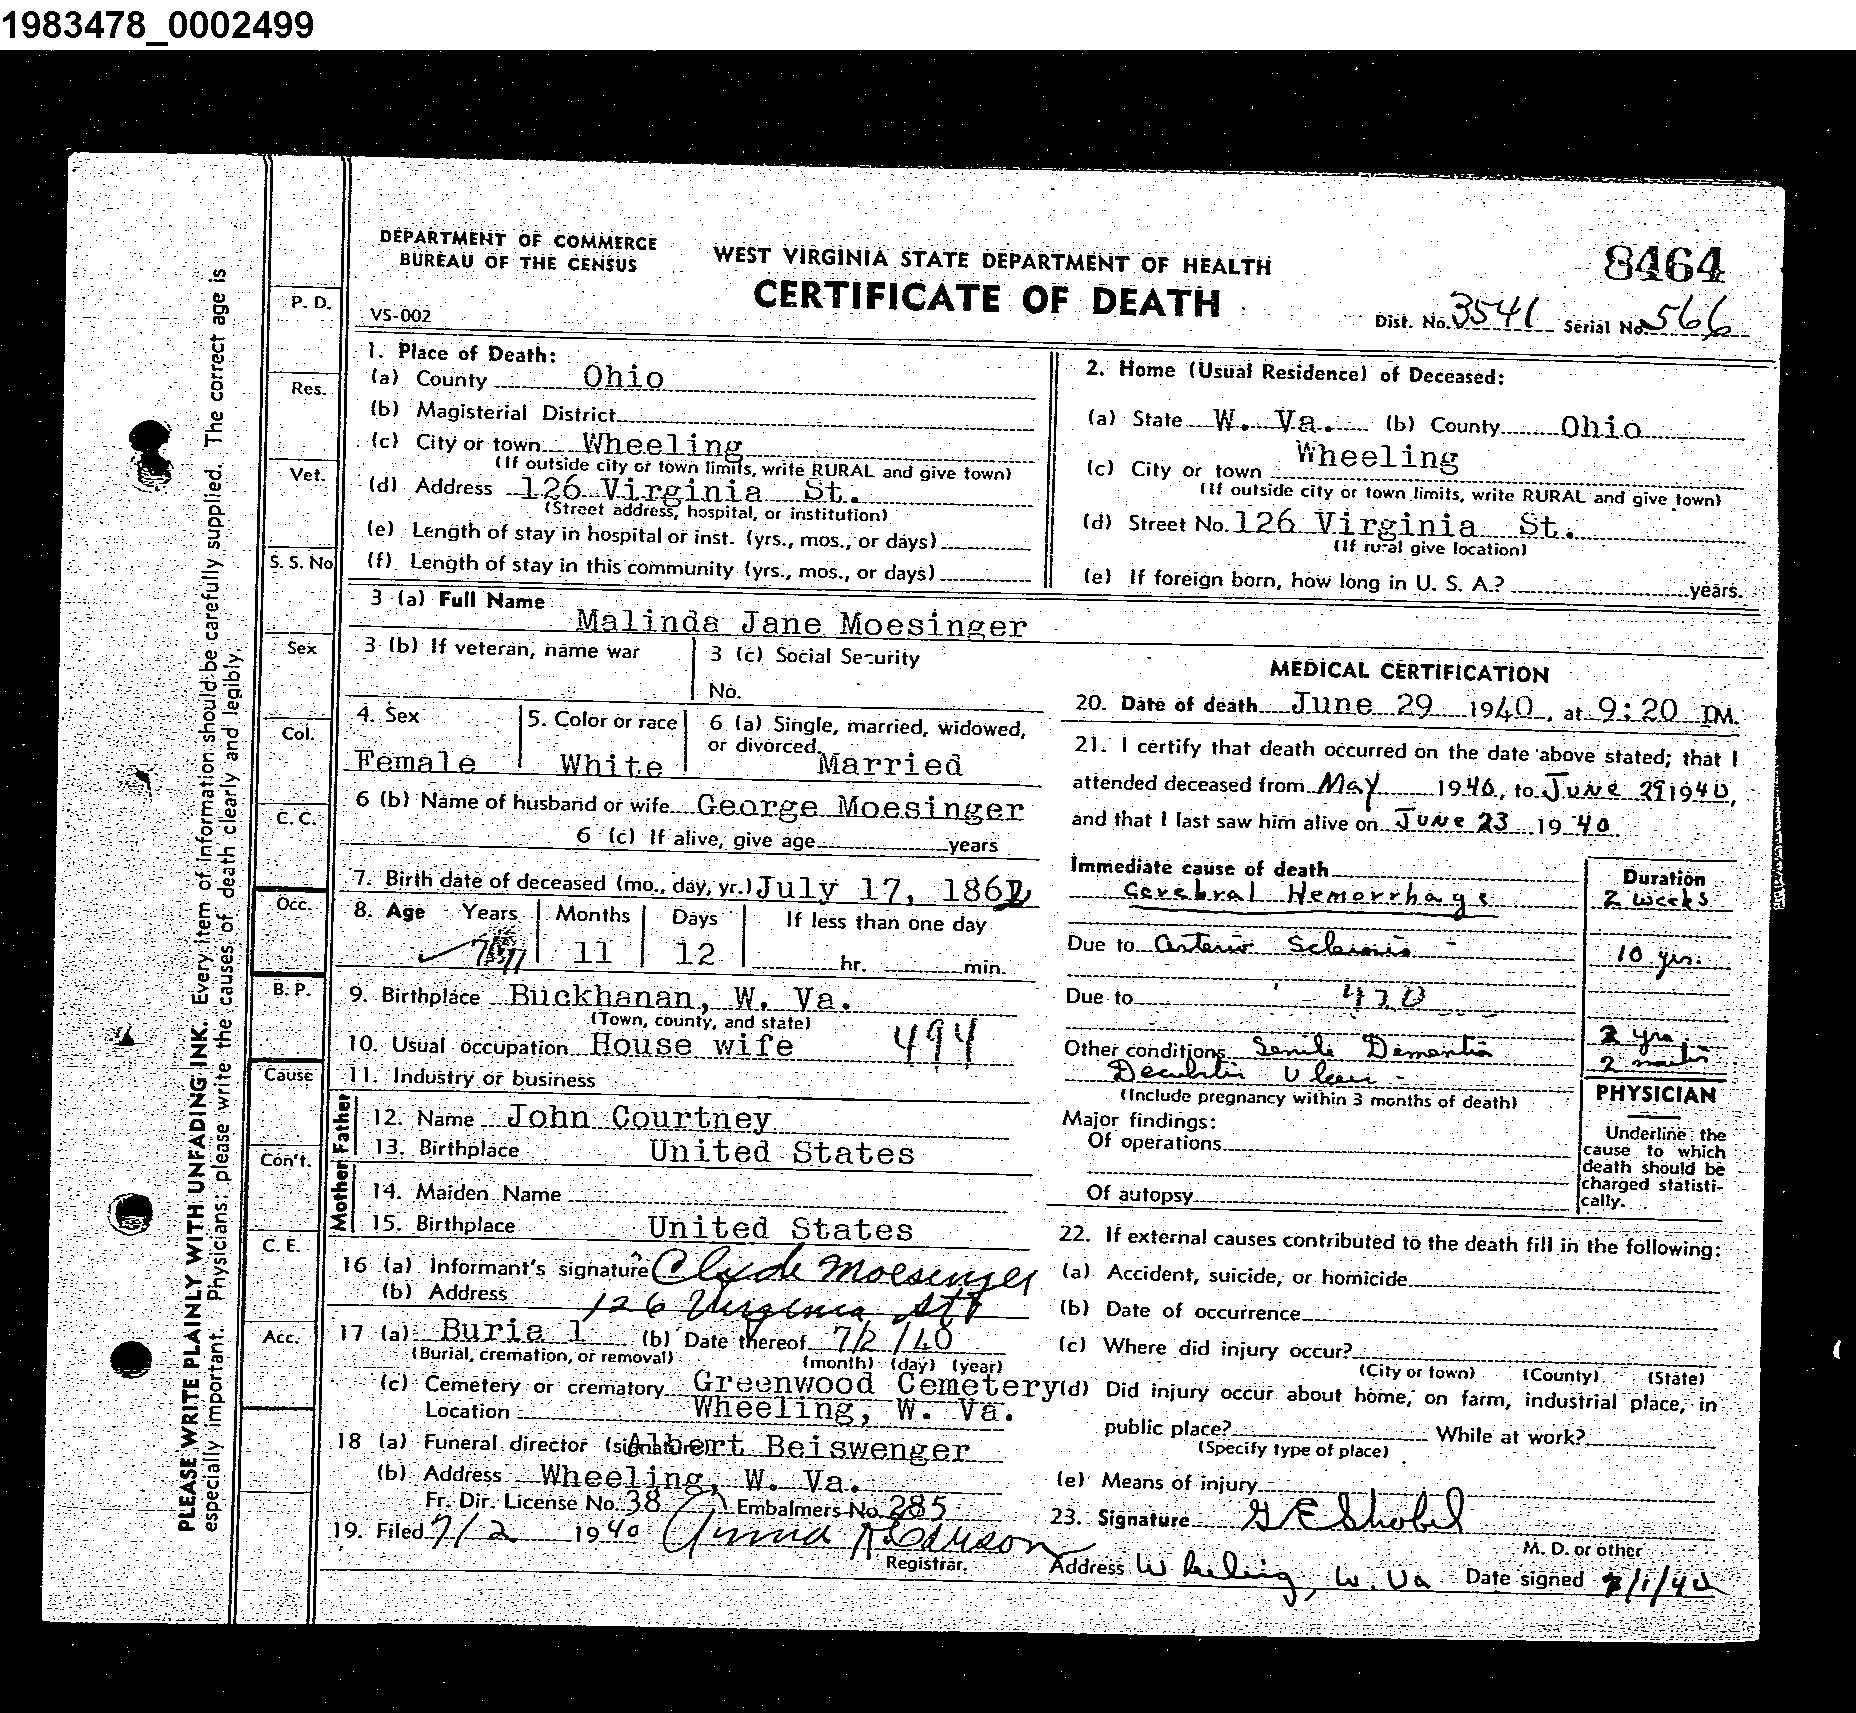 1983478_0002499
DEPARTMENT OF COMMERCE
BUREAU OF THE CENSUS
WEST VIRGINIA STATE DEPARTMENT OF HEALTH
CERTIFICATE OF DEATH
8464
VS-002
Dist. No. 3541 Serial No. 566
PLEASE WRITE PLAINLY WITH UNFADING INK. Every item of information should be carefully supplied. The correct age is
especially important. Physicians: please write the causes of death clearly and legibly.
P. D.
Res.
Vet.
S. S. No
Sex
Col.
C. C.
Occ.
B. P.
Cause
Con't.
C. E.
Acc.
1. Place of Death:
(a) County Ohio
(b) Magisterial District
(c) City or town Wheeling
(If outside city or town limits, write RURAL and give town)
(d) Address 126 Virginia St.
(Street address, hospital, or institution)
(e) Length of stay in hospital or inst. (yrs., mos., or days)
(f) Length of stay in this community (yrs., mos., or days)
2. Home (Usual Residence) of Deceased:
(a) State W. Va. (b) County Ohio
(c) City or town Wheeling
(If outside city or town limits, write RURAL and give town)
(d) Street No. 126 Virginia St.
(If rural give location)
(e) If foreign born, how long in U. S. A.? years.
3 (a) Full Name Malinda Jane Moesinger
3 (b) If veteran, name war
3 (c) Social Security
No.
4. Sex
Female
5. Color or race
White
6 (a) Single, married, widowed,
or divorced.
Married
6 (b) Name of husband or wife George Moesinger
6 (c) If alive, give age years
7. Birth date of deceased (mo., day, yr.) July 17, 1862
8. Age Years Months Days If less than one day
77 11 12 hr. min.
9. Birthplace Buckhanan, W. Va.
(Town, county, and state)
10. Usual occupation House wife 494
11. Industry or business
Father
12. Name John Courtney
13. Birthplace United States
Mother
14. Maiden Name
15. Birthplace United States
16 (a) Informant's signature Clyde Moesinger
(b) Address 126 Virginia St
17 (a) Buria l (b) Date thereof 7/2/40
(Burial, cremation, or removal) (month) (day) (year)
(c) Cemetery or crematory Greenwood Cemetery
Location Wheeling, W. Va.
18 (a) Funeral director (signature) Albert Beiswenger
(b) Address Wheeling, W. Va.
Fr. Dir. License No. 38 Embalmers No. 285
19. Filed 7/2 1940 Anna
Registrar.
MEDICAL CERTIFICATION
20. Date of death June 29 1940, at 9:20 M.
21. I certify that death occurred on the date above stated; that I
attended deceased from May 1940, to June 29 1940,
and that I last saw him alive on June 23 1940
Immediate cause of death
Cerebral Hemorrhage
Duration
2 weeks
Due to Arterio Sclerosis - 10 yrs.
Due to 470
Other conditions Senile Dementia 2 yrs.
Decubitis Ulcer -
(Include pregnancy within 3 months of death)
Major findings:
Of operations
Of autopsy
PHYSICIAN
Underline the
cause to which
death should be
charged statisti-
cally.
22. If external causes contributed to the death fill in the following:
(a) Accident, suicide, or homicide
(b) Date of occurrence
(c) Where did injury occur?
(City or town) (County) (State)
(d) Did injury occur about home, on farm, industrial place, in
public place? While at work?
(Specify type of place)
(e) Means of injury
23. Signature G E Strobel
M. D. or other
Address Wheeling, W. Va Date signed 7/1/40